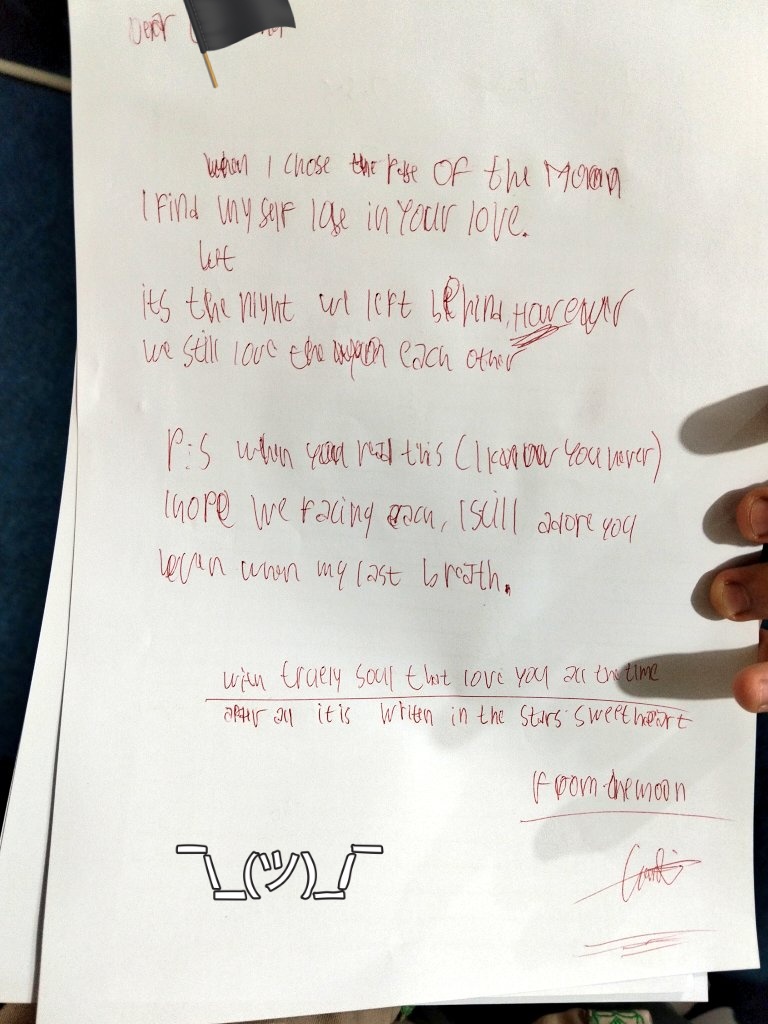 Dear
when I chose the rose OF the Moon
I find my self lose in your love.
but
its the night we left behind, However
we still love the each other
P:S when you read this (I know you never)
I hope we facing each, I still adore you
even when my last breath.
with truely soul that love you all the time
after all it is written in the stars sweetheart
From the moon
¯\_(ツ)_/¯